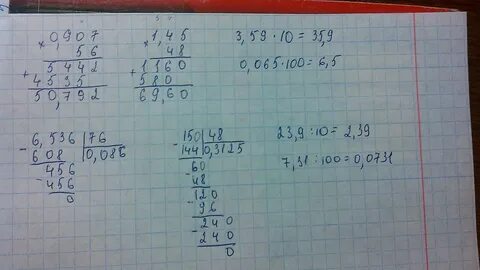 0,907
× 56
5442
+ 4535
50,792
1,45
× 48
1160
+ 580
69,60
3,59 · 10 = 35,9
0,065 · 100 = 6,5
- 6,536 | 76
608 | 0,086
- 456
456
0
- 150 | 48
144 | 0,3125
- 60
48
- 120
96
- 240
240
0
23,9 : 10 = 2,39
7,31 : 100 = 0,0731